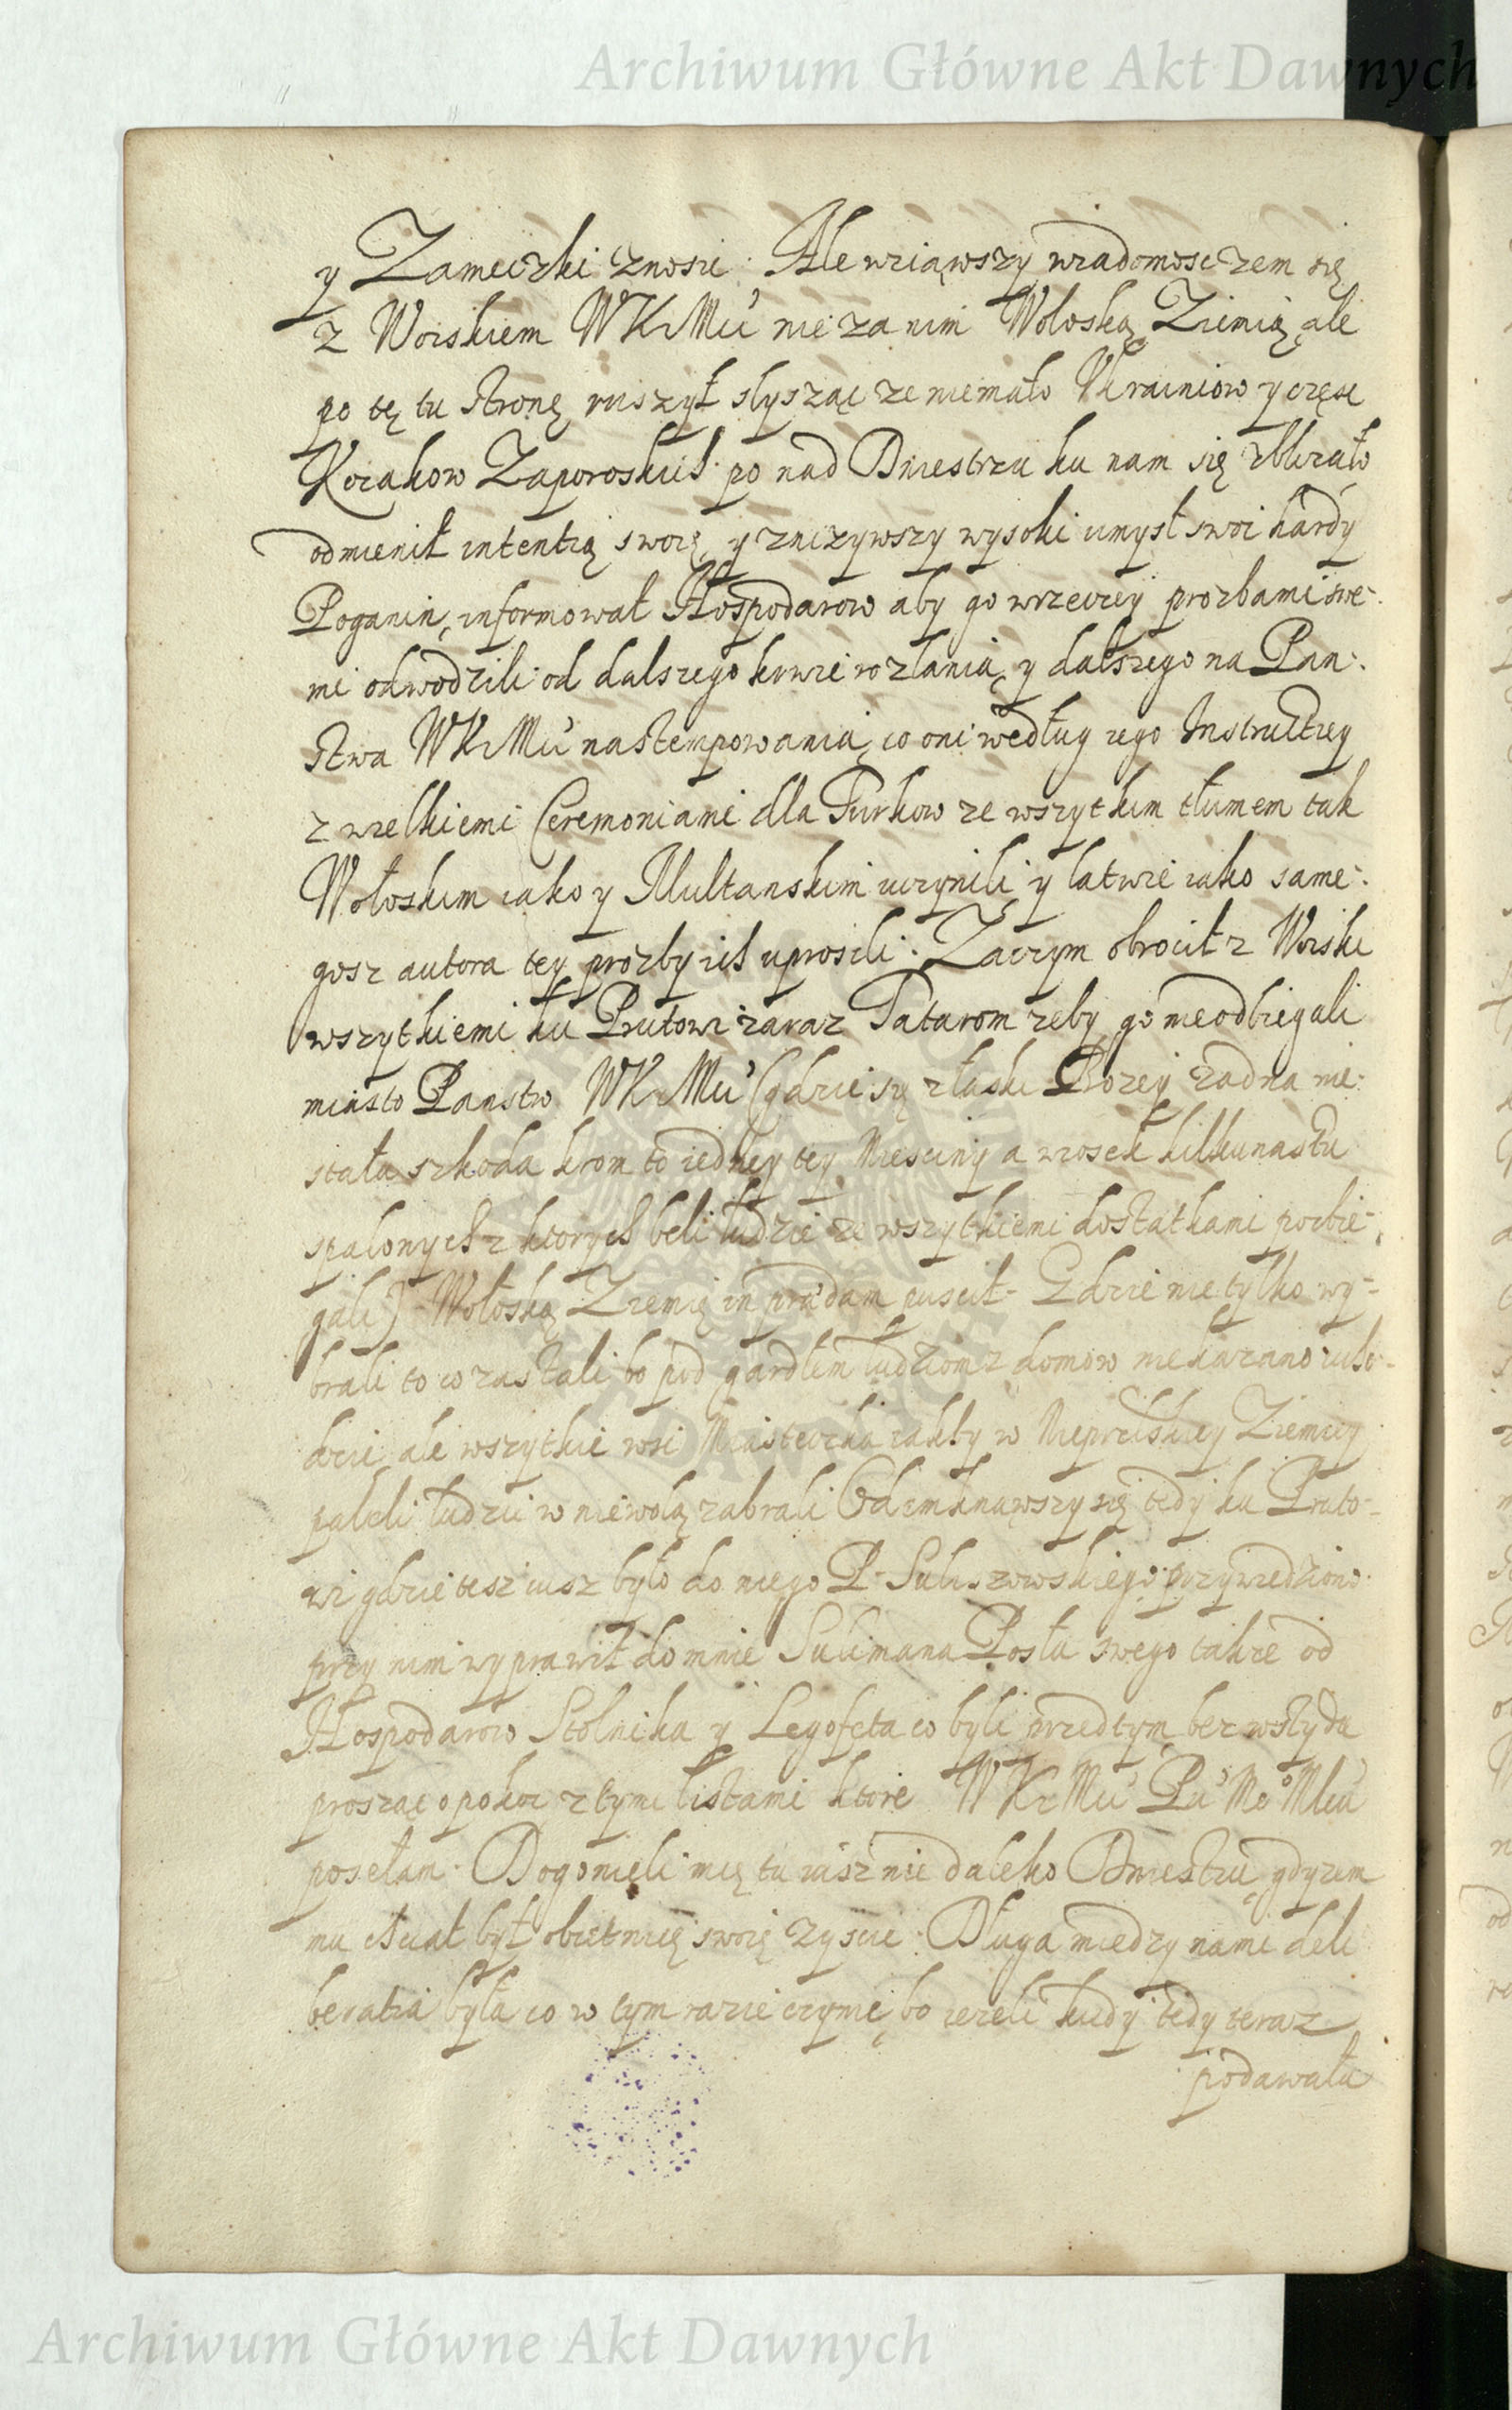 Archiwum Główne Akt Dawnych
y Zameczki znosic. Ale wziąwszy wiadomosc zem się
z Woiskiem WKrMci nie za nim Wołoską Ziemią ale
po tę tu stronę ruszył slysząc ze niemało Ukrainiow y częsc
Kozakow Zaporoskich po nad Dniestrza ku nam się zbliżało
odmienił intentią swoię y zniżywszy wysoki umysł swoi hardy
Poganin, informował Hospodarow aby go wrzeczy prozbami swe-
mi odwodzili od dalszego krwie rozlania y dalszego na Pan-
stwa WKrMci nastempowania, co oni według iego Instructiey
z wielkiemi Ceremoniami dla Turkow ze wszytkim tłumem tak
Wołoskim iako y Multanskim uczynili y latwie iako same-
gosz autora tey prożby ich uprosili. Zaczym obrocił z Woiski
wszytkiemi ku Prutowi zaraz Tatarom zeby go nieodbiegali
miasto Panstw WKrMci (gdzie się z łaski Bozey żadna nie
stała szkoda krom to iedney tey Miesciny a wiosek kilkunastu
spalonych z ktorych beli ludzie ze wszytkiemi dostatkami pozbie-
gali) Wołoską Ziemię in prædam puscił. Gdzie nie tylko wy-
brali to co zastali bo pod gardłem ludziom z domow nie kazano ucho-
dzic ale wszytkie wsi Miasteczka iakby w Nieprziaskiey Ziemiey
palili ludzi w niewolą zabrali Odemknąwszy się tedy ku Pruto-
wi gdzie tesz iusz było do niego P. Suliszowskiego przywiedziono
przy nim wyprawił do mnie Sulimana Posła swego takze od
Hospodarow Stolnika y Legofeta co byli przedtym bez wstydu
prosząc o pokoi z tymi listami ktore WKrMci Pu Mo Mciu
posełam. Dogonieli mię tu iusz nie daleko Dniestru, gdyzem
mu chciał był obietnicę swoię zyscic. Długa miedzy nami deli
beratia była co w tym razie czynic, bo iezeli kiedy tedy teraz
podawała
Archiwum Główne Akt Dawnych